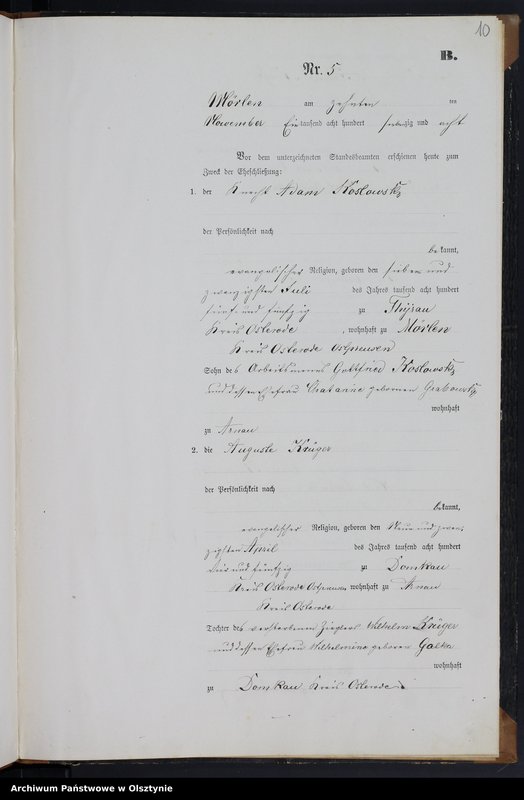 10
B.
Nr. 5
Mörlen am zehnten ten
November Ein tausend acht hundert siebenzig und acht
Vor dem unterzeichneten Standesbeamten erschienen heute zum
Zweck der Eheschließung:
1. der Knecht Adam Koslowski
der Persönlichkeit nach
bekannt,
evangelischer Religion, geboren den sieben und
zwanzigsten Juli des Jahres tausend acht hundert
fünf und fünfzig zu Thyrau
Kreis Osterode, wohnhaft zu Mörlen
Kreis Osterode Ostpreusen
Sohn des Arbeitsmanns Gottfried Koslowski
und dessen Ehefrau geborenen Grabowski
wohnhaft
zu Arnau
2. die Auguste Krüger
der Persönlichkeit nach
bekannt,
evangelischer Religion, geboren den Neun und zwan-
zigsten April des Jahres tausend acht hundert
und fünfzig zu Domkau
Kreis Osterode Ostpreusen wohnhaft zu Arnau
Kreis Osterode
Tochter des verstorbenen Zieglers Wilhelm Krüger
und dessen Ehefrau Wilhelmine geboren
wohnhaft
zu Domkau Kreis Osterode
Archiwum Państwowe w Olsztynie